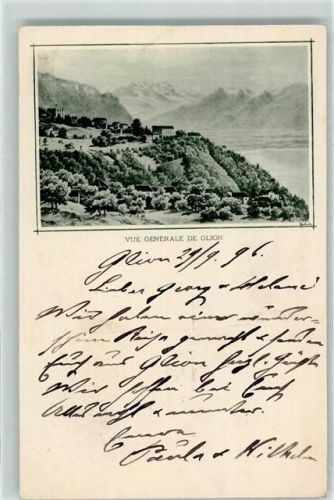 VUE GÉNÉRALE DE GLION
Glion 29/9. 96.
Lieber Georg & Melanie
Wir haben eine wunder-
Reise gemacht & senden
Euch aus Glion
Wir hoffen bei Euch
Alles & munter.
Paula & Wilhelm